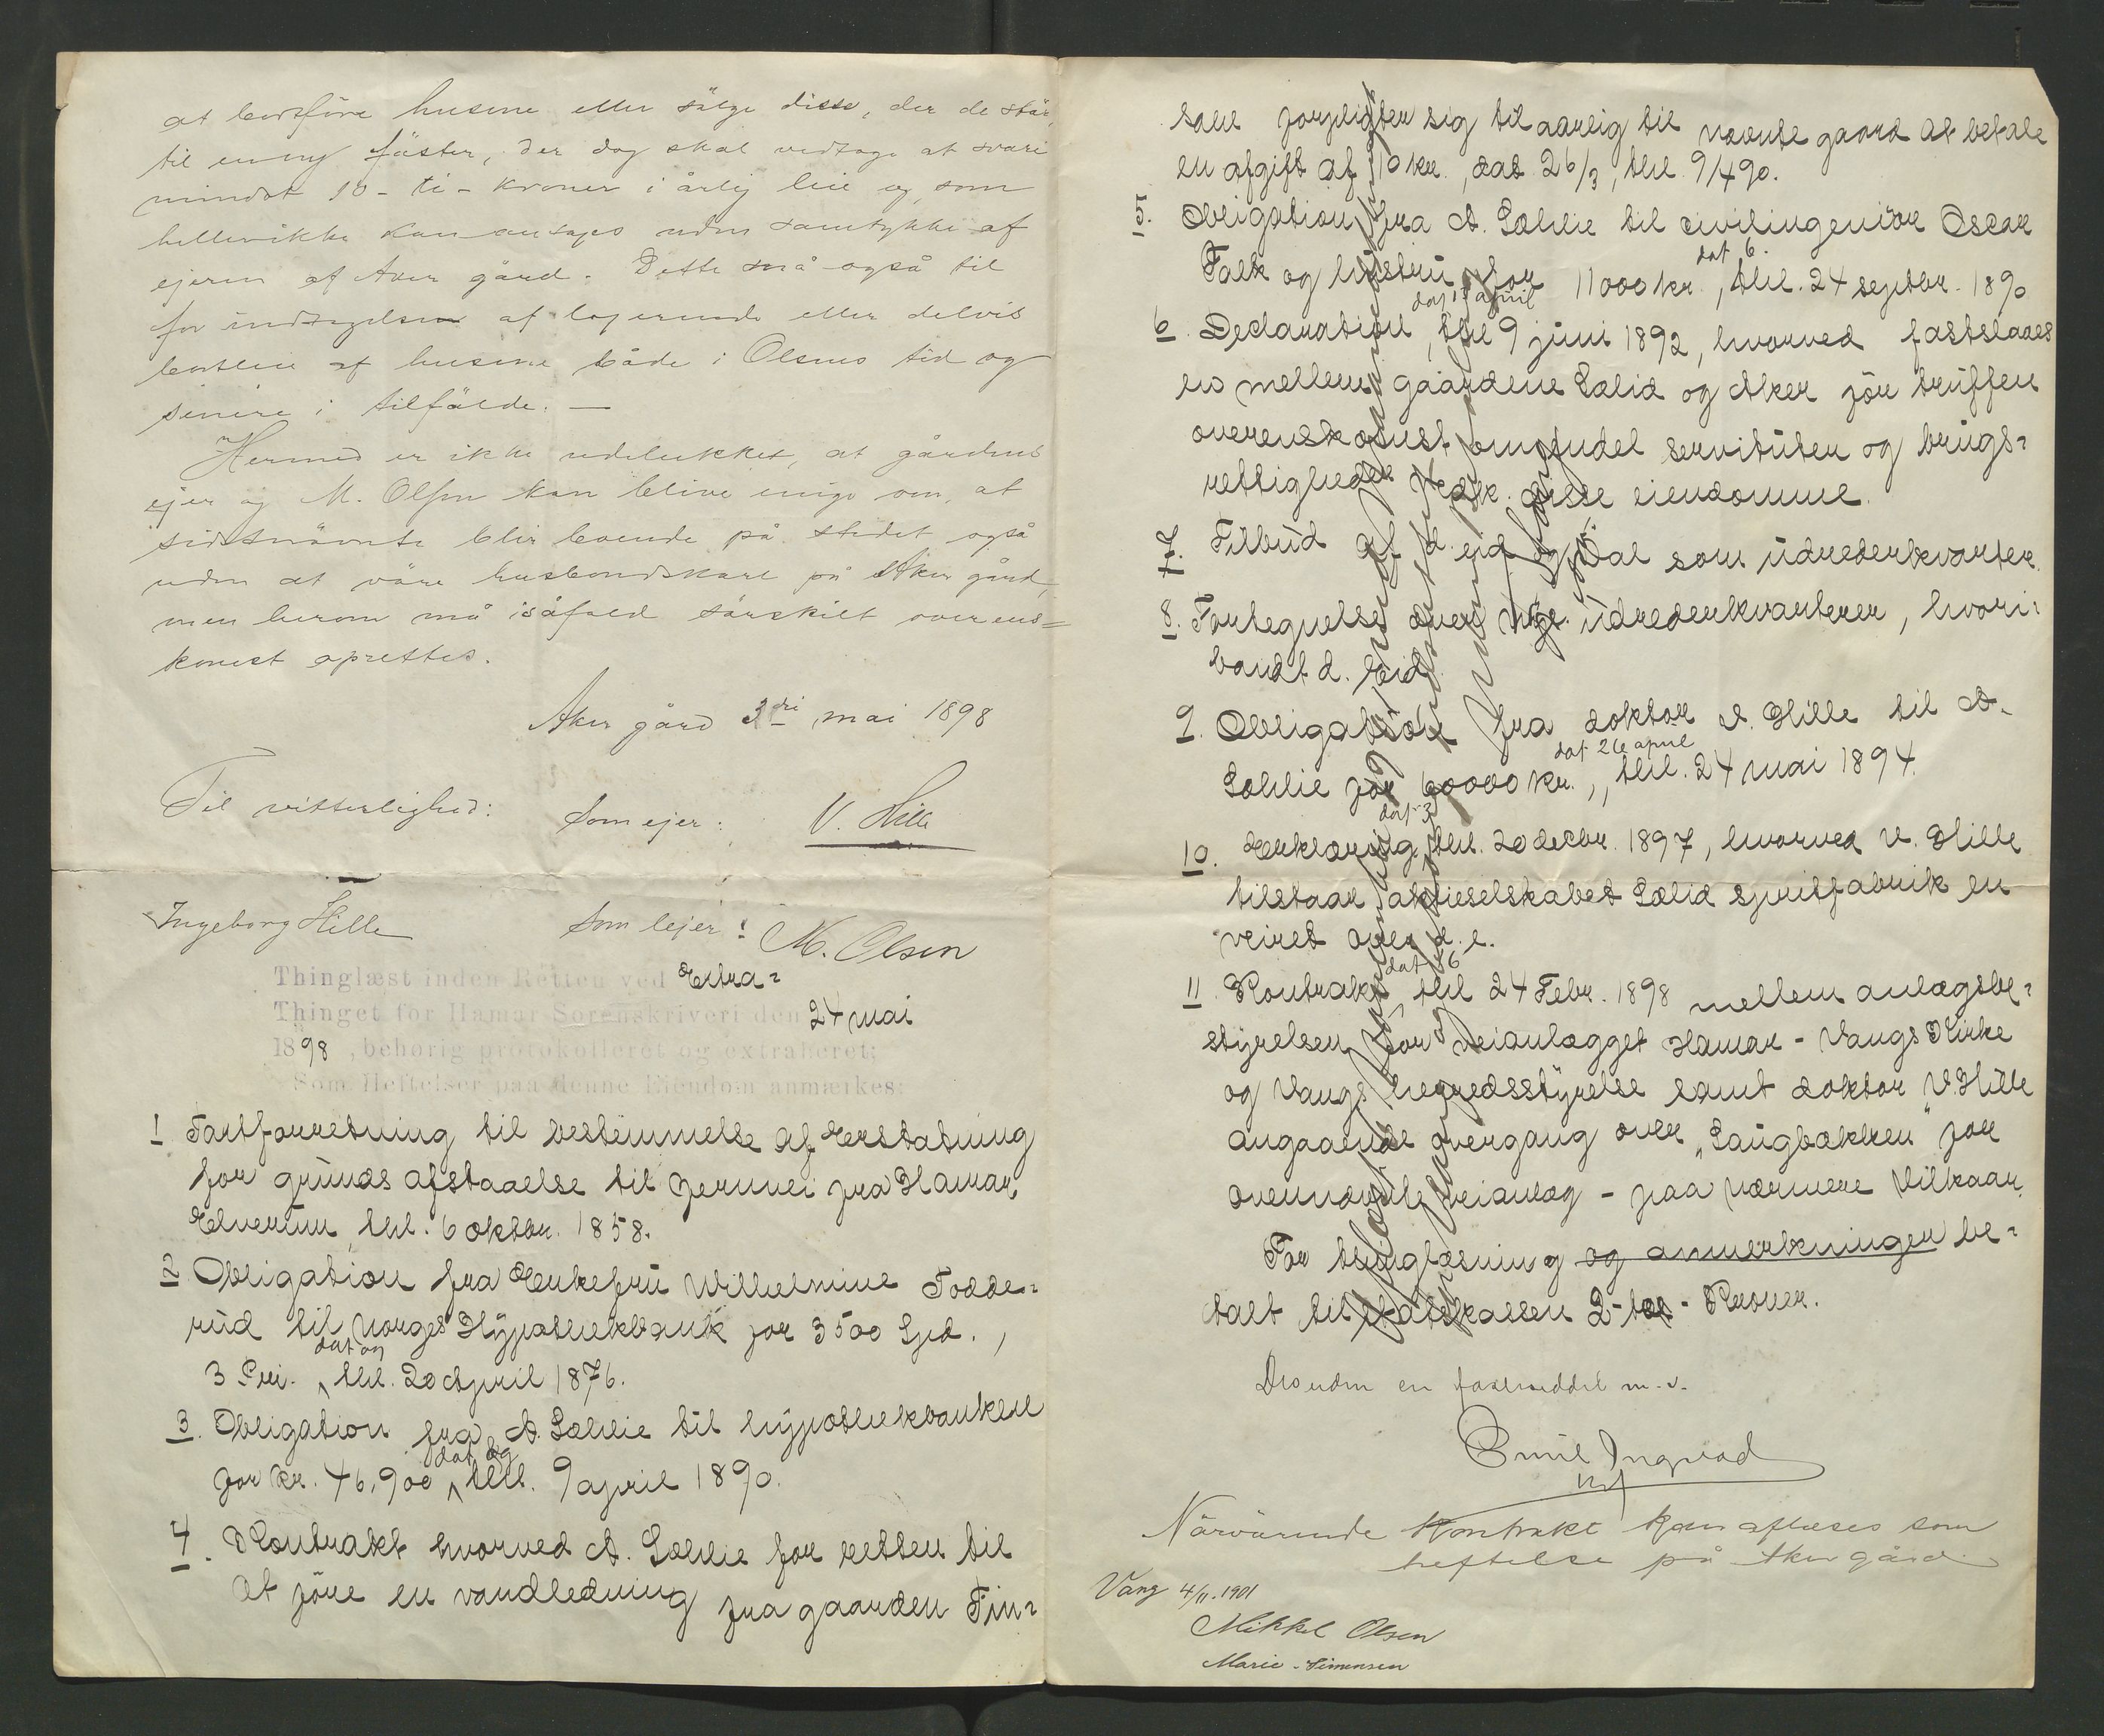 at bortföre husene eller sälge disse, der de står,
til en ny fäster, der dog skal vedtage at svare
mindst 10 - ti - kroner i årlig leie og som
hellerikke kan antages uden samtykke af
ejeren af Aker gård. Dette må også til
for indtagelsen af logerende eller delvis
bortleie af husene både i Olsens tid og
senere i tilfälde. —
Hermed er ikke udelukket, at gårdens
ejer og M. Olsen kan blive enige om, at
sidstnävnte blir boende på stedet også
uden at väre husbondskarl på Aker gård,
men herom må isåfald särskilt overens=
komst oprettes.
Aker gård 3di mai 1898
Til vitterlighed: Som ejer: V. Hille
Ingeborg Hille Som lejer: M. Olsen
Thinglæst inden Retten ved Extra=
Thinget for Hamar Sorenskriveri den 24 mai
1898, behørig protokolleret og extraheret;
Som Heftelser paa denne Eiendom anmærkes:
1 Fortforretning til bestemmelse af Erstatning
for grunds afstaaelse til Jernvei fra Hamar
Elverum, thl. 6 oktbr. 1858.
2 Obligation fra Enkefru Wilhelmine Todde=
rud til Norges Hypothekbank for 3500 Spd.,
3 Pri. dat og thl. 20 April 1876.
3. Obligation fra A. Sæhlie til hypothekbanken
for kr. 46,900 dat og thl. 9 april 1890.
4. Kontrakt hvorved A. Sæhlie for retten til
at före en vandledning fra gaarden Fin=
forpligter sig til aarlig til nævnte gaard at betale
en afgift af 10 kr., dat 26/3, thl 9/4 90.
5. Obligation fra A. Sæhlie til civilingeniör Oscar
Falk og hustru for 11000 kr, dat 6. thl. 24 septbr. 1890
6. Declaration, thl 9 juni 1892, hvorved fastslaaes
en mellem gaardene Sælid og Aker för truffen
overenskomst servituter og brugs=
rettigheder disse eiendomme.
7. Tilbud af d. eid og Dal som udrederkvarter.
8. Fortegnelse over udrederkvarterer, hvori=
bandt d. Eid.
9. Obligation fra doktor V. Hille til A.
Sæhlie for 60000 kr., dat 26 april thl. 24 mai 1894.
10. Erklæring dat 3 thl. 20 decbr. 1897, hvorved V. Hille
tilstaar aktieselskabet Sælid spritfabrik en
veiret over d. e.
11. Kontrakt dat 16 thl 24 Febr. 1898 mellem anlægsbe=
styrelsen for veianlægget Hamar - Vangs Kirke
og Vangs herredsstyrelse samt doktor V. Hille
angaaende overgang over „Saugbækken" for
ovennævnte veianlæg - paa nærmere Vilkaar.
For thinglæsning og anmerkninger be=
talt til statskassen 2 - to - Kroner.
Desuden en m. v.
Emil Ingvad
Närvärende Kontrakt kan aflæses som
heftelse på Aker gård
Vang 4/11. 1901
Mikkel Olsen
Marie Simensen